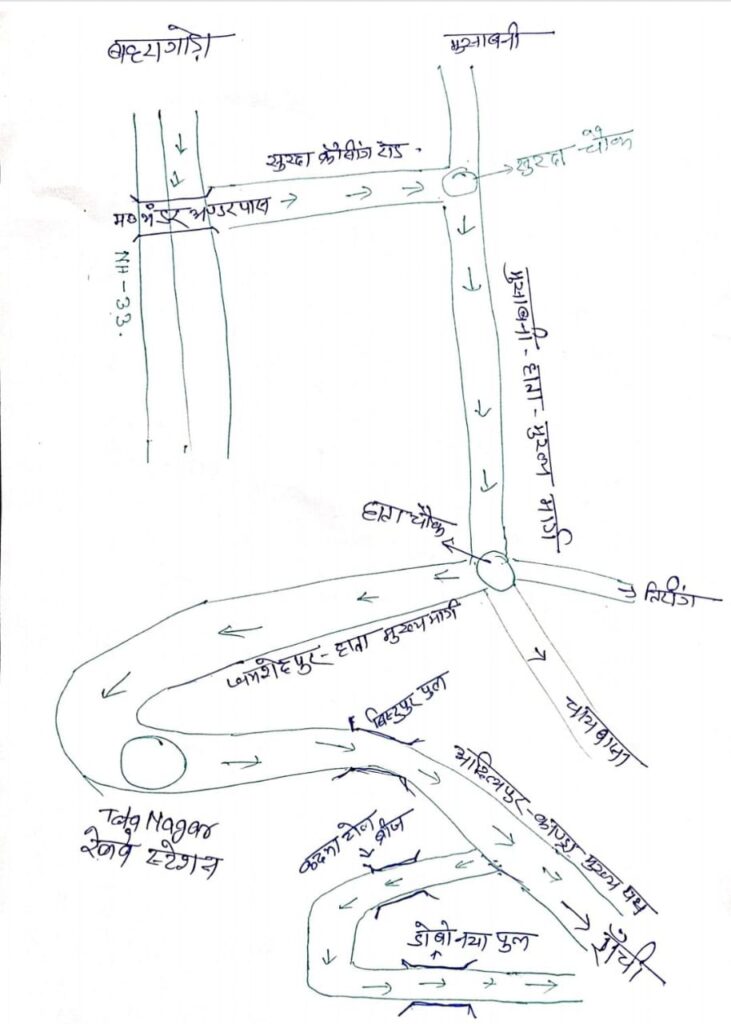 बहरागोड़ा
मुसाबनी
सुरदा क्रॉसिंग रोड
सुरदा चौक
अण्डरपास
NH-33.
मुसाबनी - हाता - मुख्य मार्ग
हाता चौक
तिरींग
जमशेदपुर - हाता मुख्य मार्ग
चाईबासा
बिष्टुपुर पुल
Tata Nagar
रेलवे स्टेशन
आदित्यपुर - काण्ड्रा मुख्य पथ
कदमा टोल
ब्रीज
डोबो नया पुल
राँची